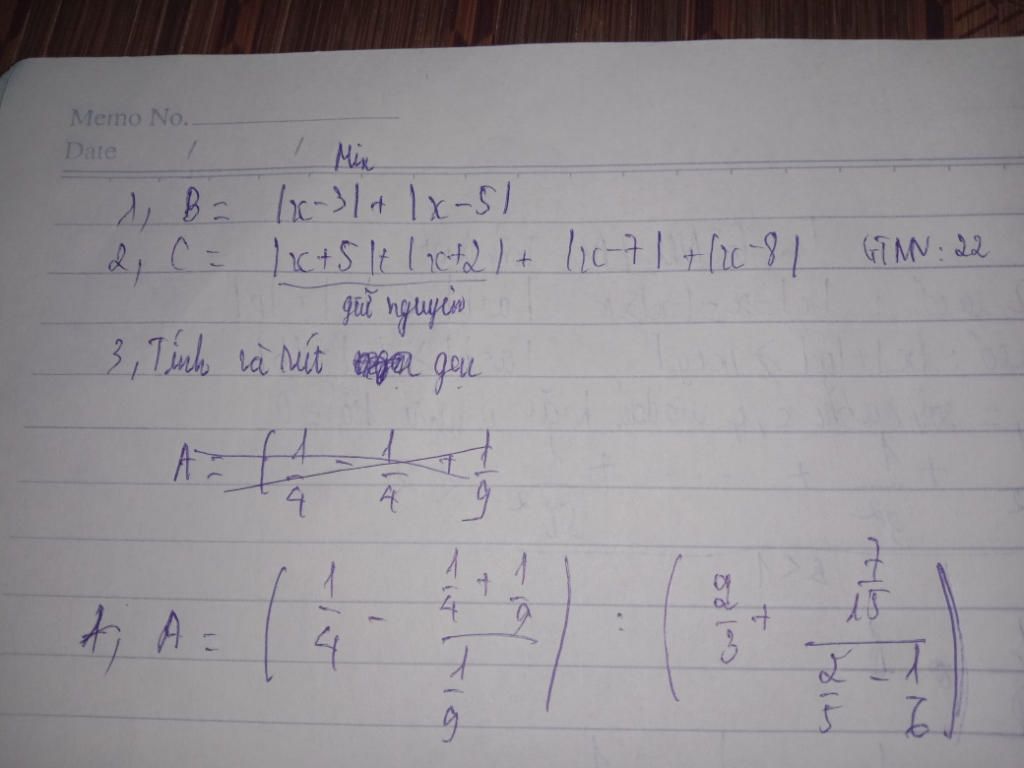 Memo No.
Date / /
Min
1, B = |x-3| + |x-5|
2, C = |x+5| + |x+2| + |x-7| + |x-8| GTNN: 22
giữ nguyên
3, Tính và rút gọn
A = ( 1/4 - 1/4 + 1/9
A = ( 1/4 - (1/4 + 1/9)/(1/9) ) : ( 2/3 + (7/15)/(2/5 - 1/6) )